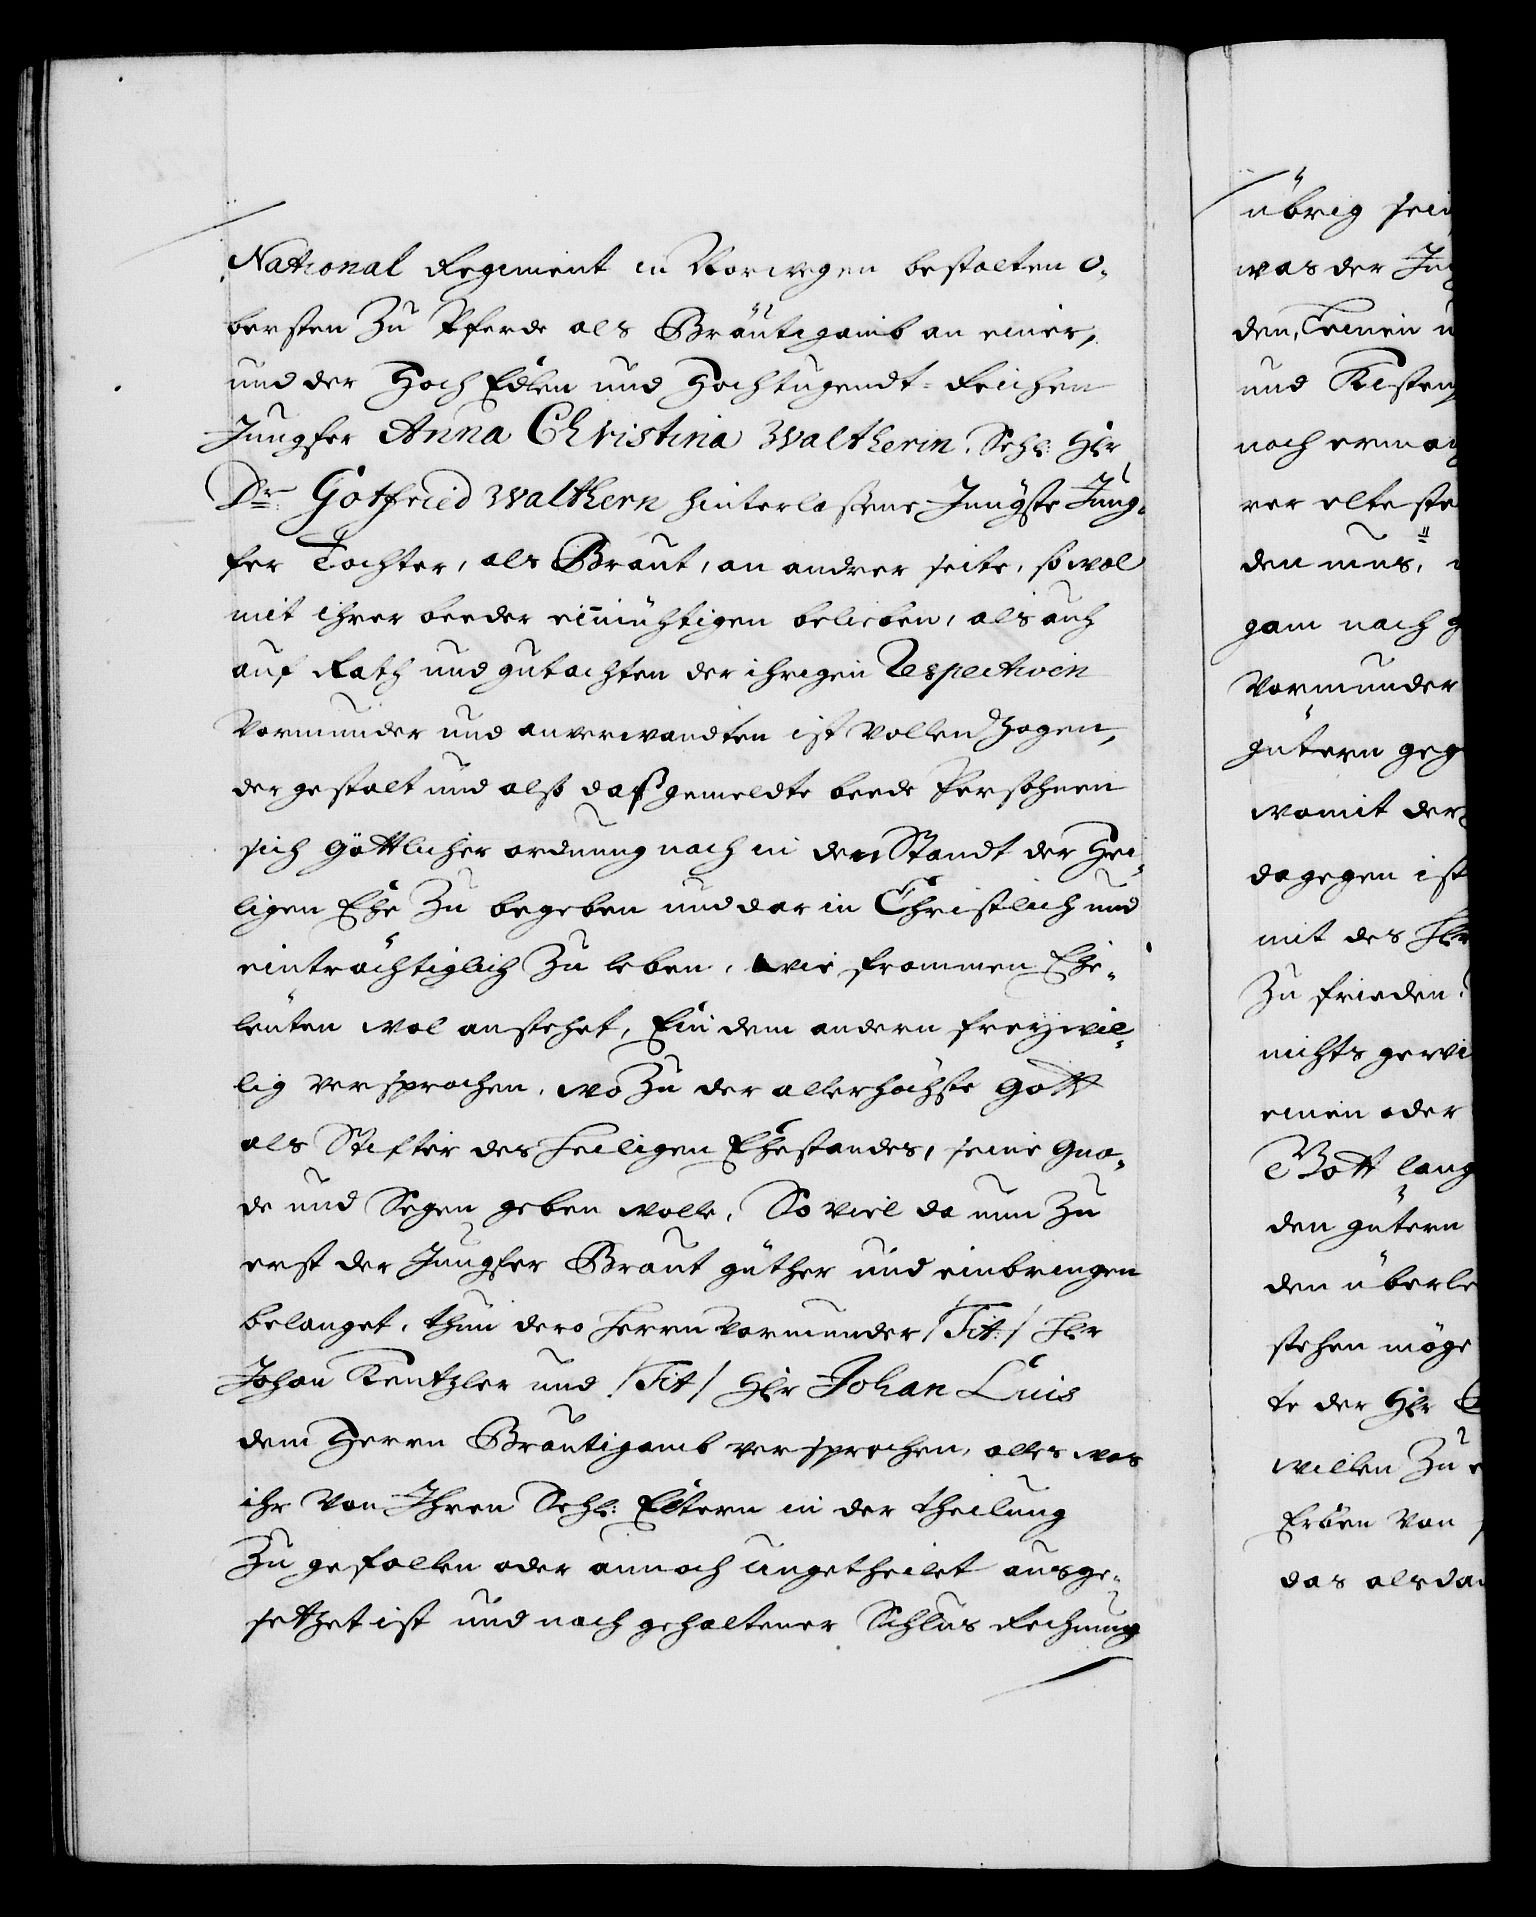 National Regiment in Norwegen bestalten O-
bersten Zu Pferde als Bräutigamb an einer,
und der Hoch Edlen und Hochtugendt-Reichen
Jungfer Anna Christina Waltherin, Sehl: Hr
Dr. Gotfried Walthern hinterlaßene Jüngste Jung-
fer Tochter, als Braut, an andrer seite, so wol
mit ihrer beeder einmühtigen belieben, als auch
auf Rath und gutachten der ihrigen Respectiven
Vormünder und anverwandten ist vollendzogen,
der gestalt und alß daß gemeldte beede Persohnen
sich göttlicher ordnung nach in den Standt der Hei-
ligen Ehe Zu begeben und dar in Christlich und
einträchtiglich Zu leben, wie frommen Ehe-
leuten wol anstehet, Ein dem andern freywil-
lig versprochen, wo Zu der allerhöchste Gott
als Stifter des Heiligen Ehestandes, seine Gna-
de und Segen geben wolle, So viel da nun Zu
erst der Jungfer Braut güther und einbringen
belanget, thun dero Herrn Vormünder /Tit:/ Hr
Johan Rentzler und /Tit/ Hr Johan Luis
dem Herrn Bräutigamb versprochen, alles was
ihr von Ihren Sehl: Eltern in der theilung
Zu gefallen oder annoch ungetheilet ausge-
setzet ist und nach gehaltener Schlus Rechnung
übrig sein
was der
den,
und Kisten
noch
rer elteste
den mus,
gam nach
Vormünder
gütern
womit der
dagegen ist
mit des Hr
Zu frieden,
nichts
einen oder
Gott lang
den gütern
den
stehen möge
te der Hr
willen Zu
Erben von
das alsdan